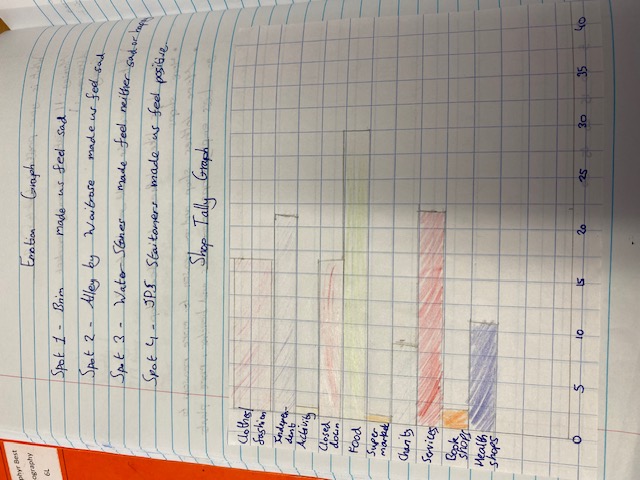 Emotion Graph
Spot 1 - Brim made us feel sad
Spot 2 - Alley by Waitrose made us feel sad
Spot 3 - Water Stones made feel neither sad or happy
Spot 4 - stationers made us feel positive
Shop Tally Graph
Clothes/
fashion
Indepen-
dent
Activity
Closed
down
Food
Super
market
Charity
Services
Book
shops
Health
shops
0 5 10 15 20 25 30 35 40
phyr Best
ography
6L